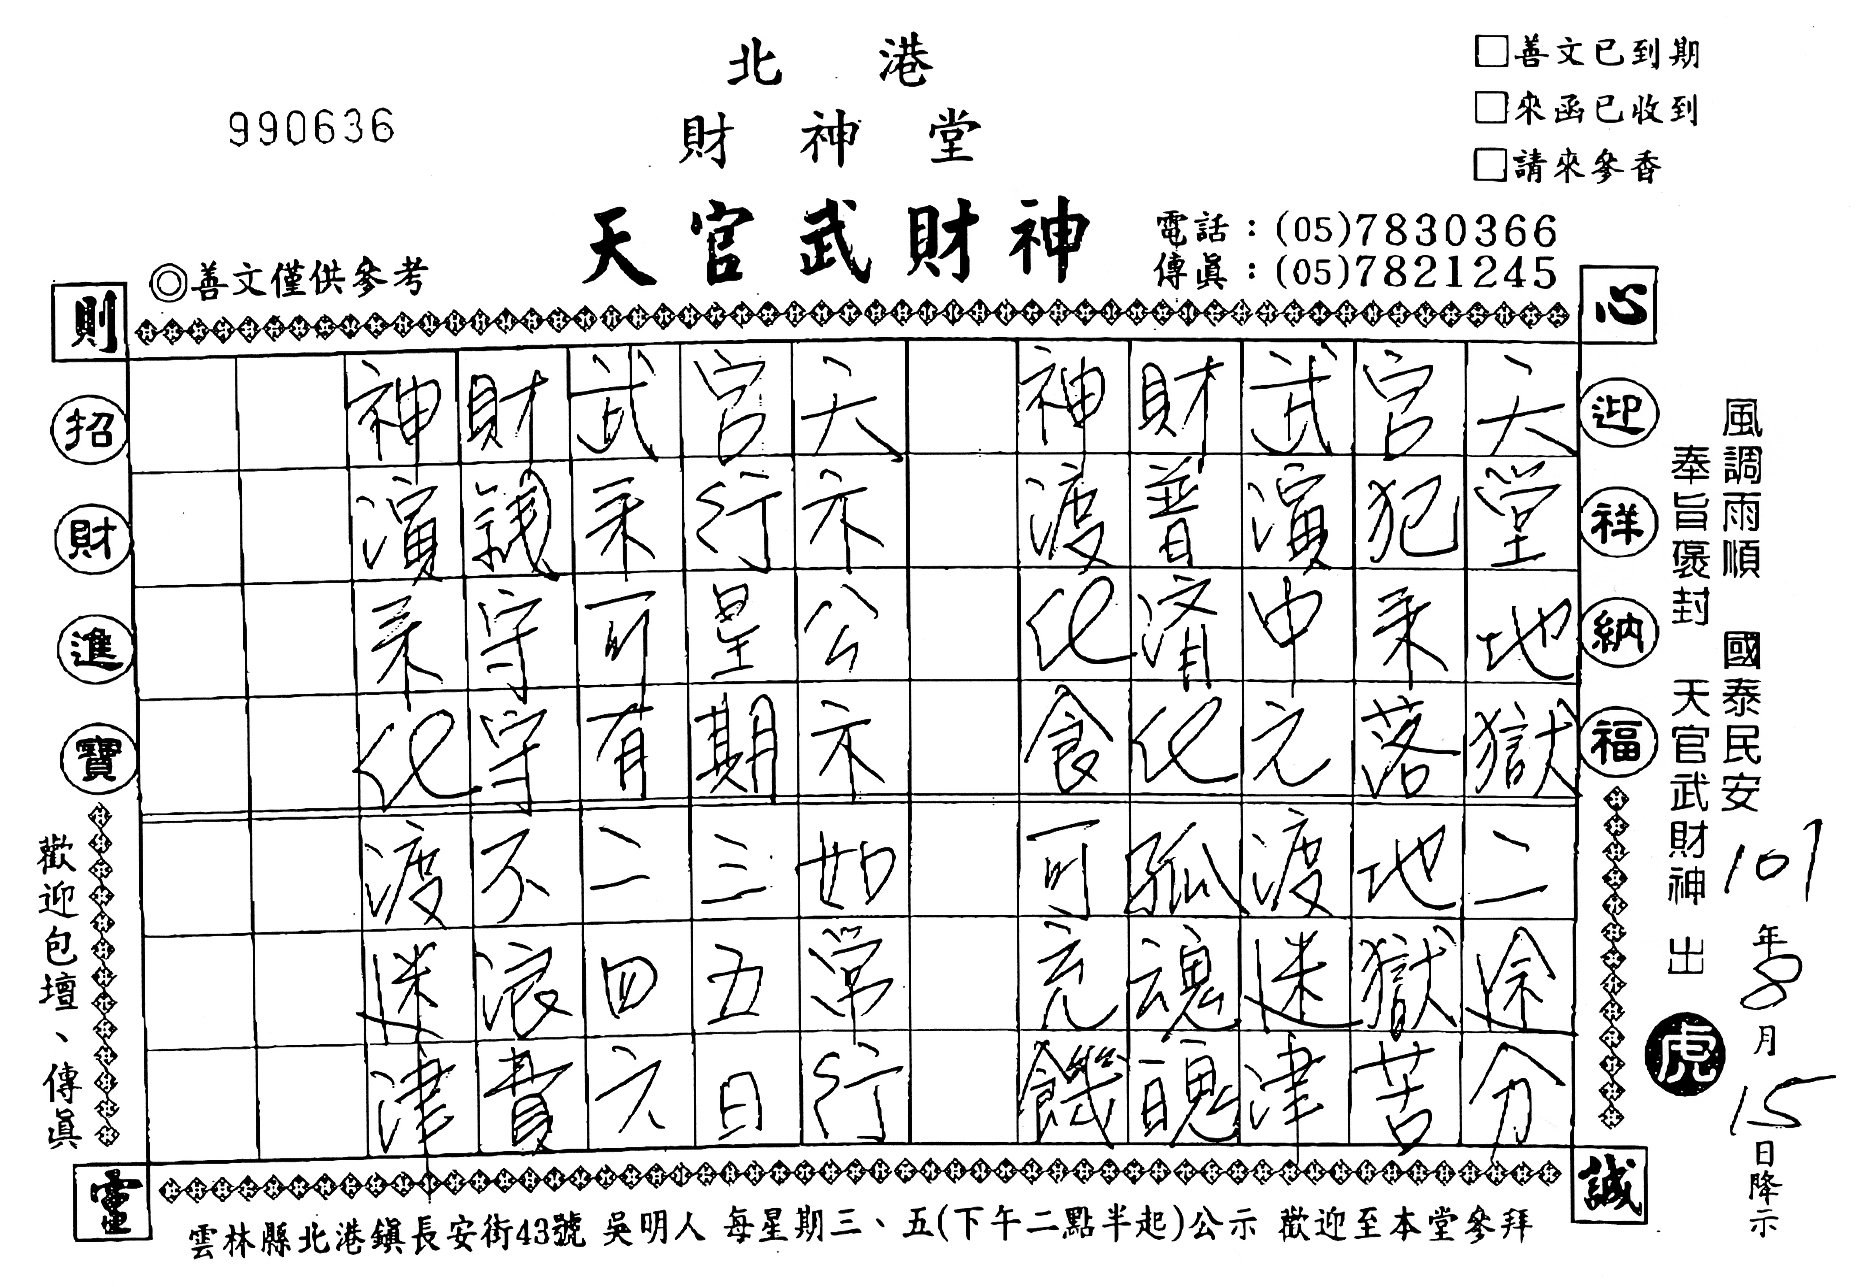 北港
財神堂
天官武財神
990636
□善文已到期
□來函已收到
□請來參香
電話：(05)7830366
傳眞：(05)7821245
◎善文僅供參考
心
迎祥納福
誠
則
招財進寶
靈
風調雨順 國泰民安
奉旨褒封 天官武財神 出
虎
107年8月15日降示
天堂地獄二途分
官犯來落地獄苦
武演中元渡迷津
財普濟化孤魂魄
神渡化食可充饑
天示公示如常行
官行星期三五日
武來可有二四六
財錢守守不浪費
神演來化渡迷津
歡迎包壇、傳眞
雲林縣北港鎭長安街43號 吳明人 每星期三、五(下午二點半起)公示 歡迎至本堂參拜